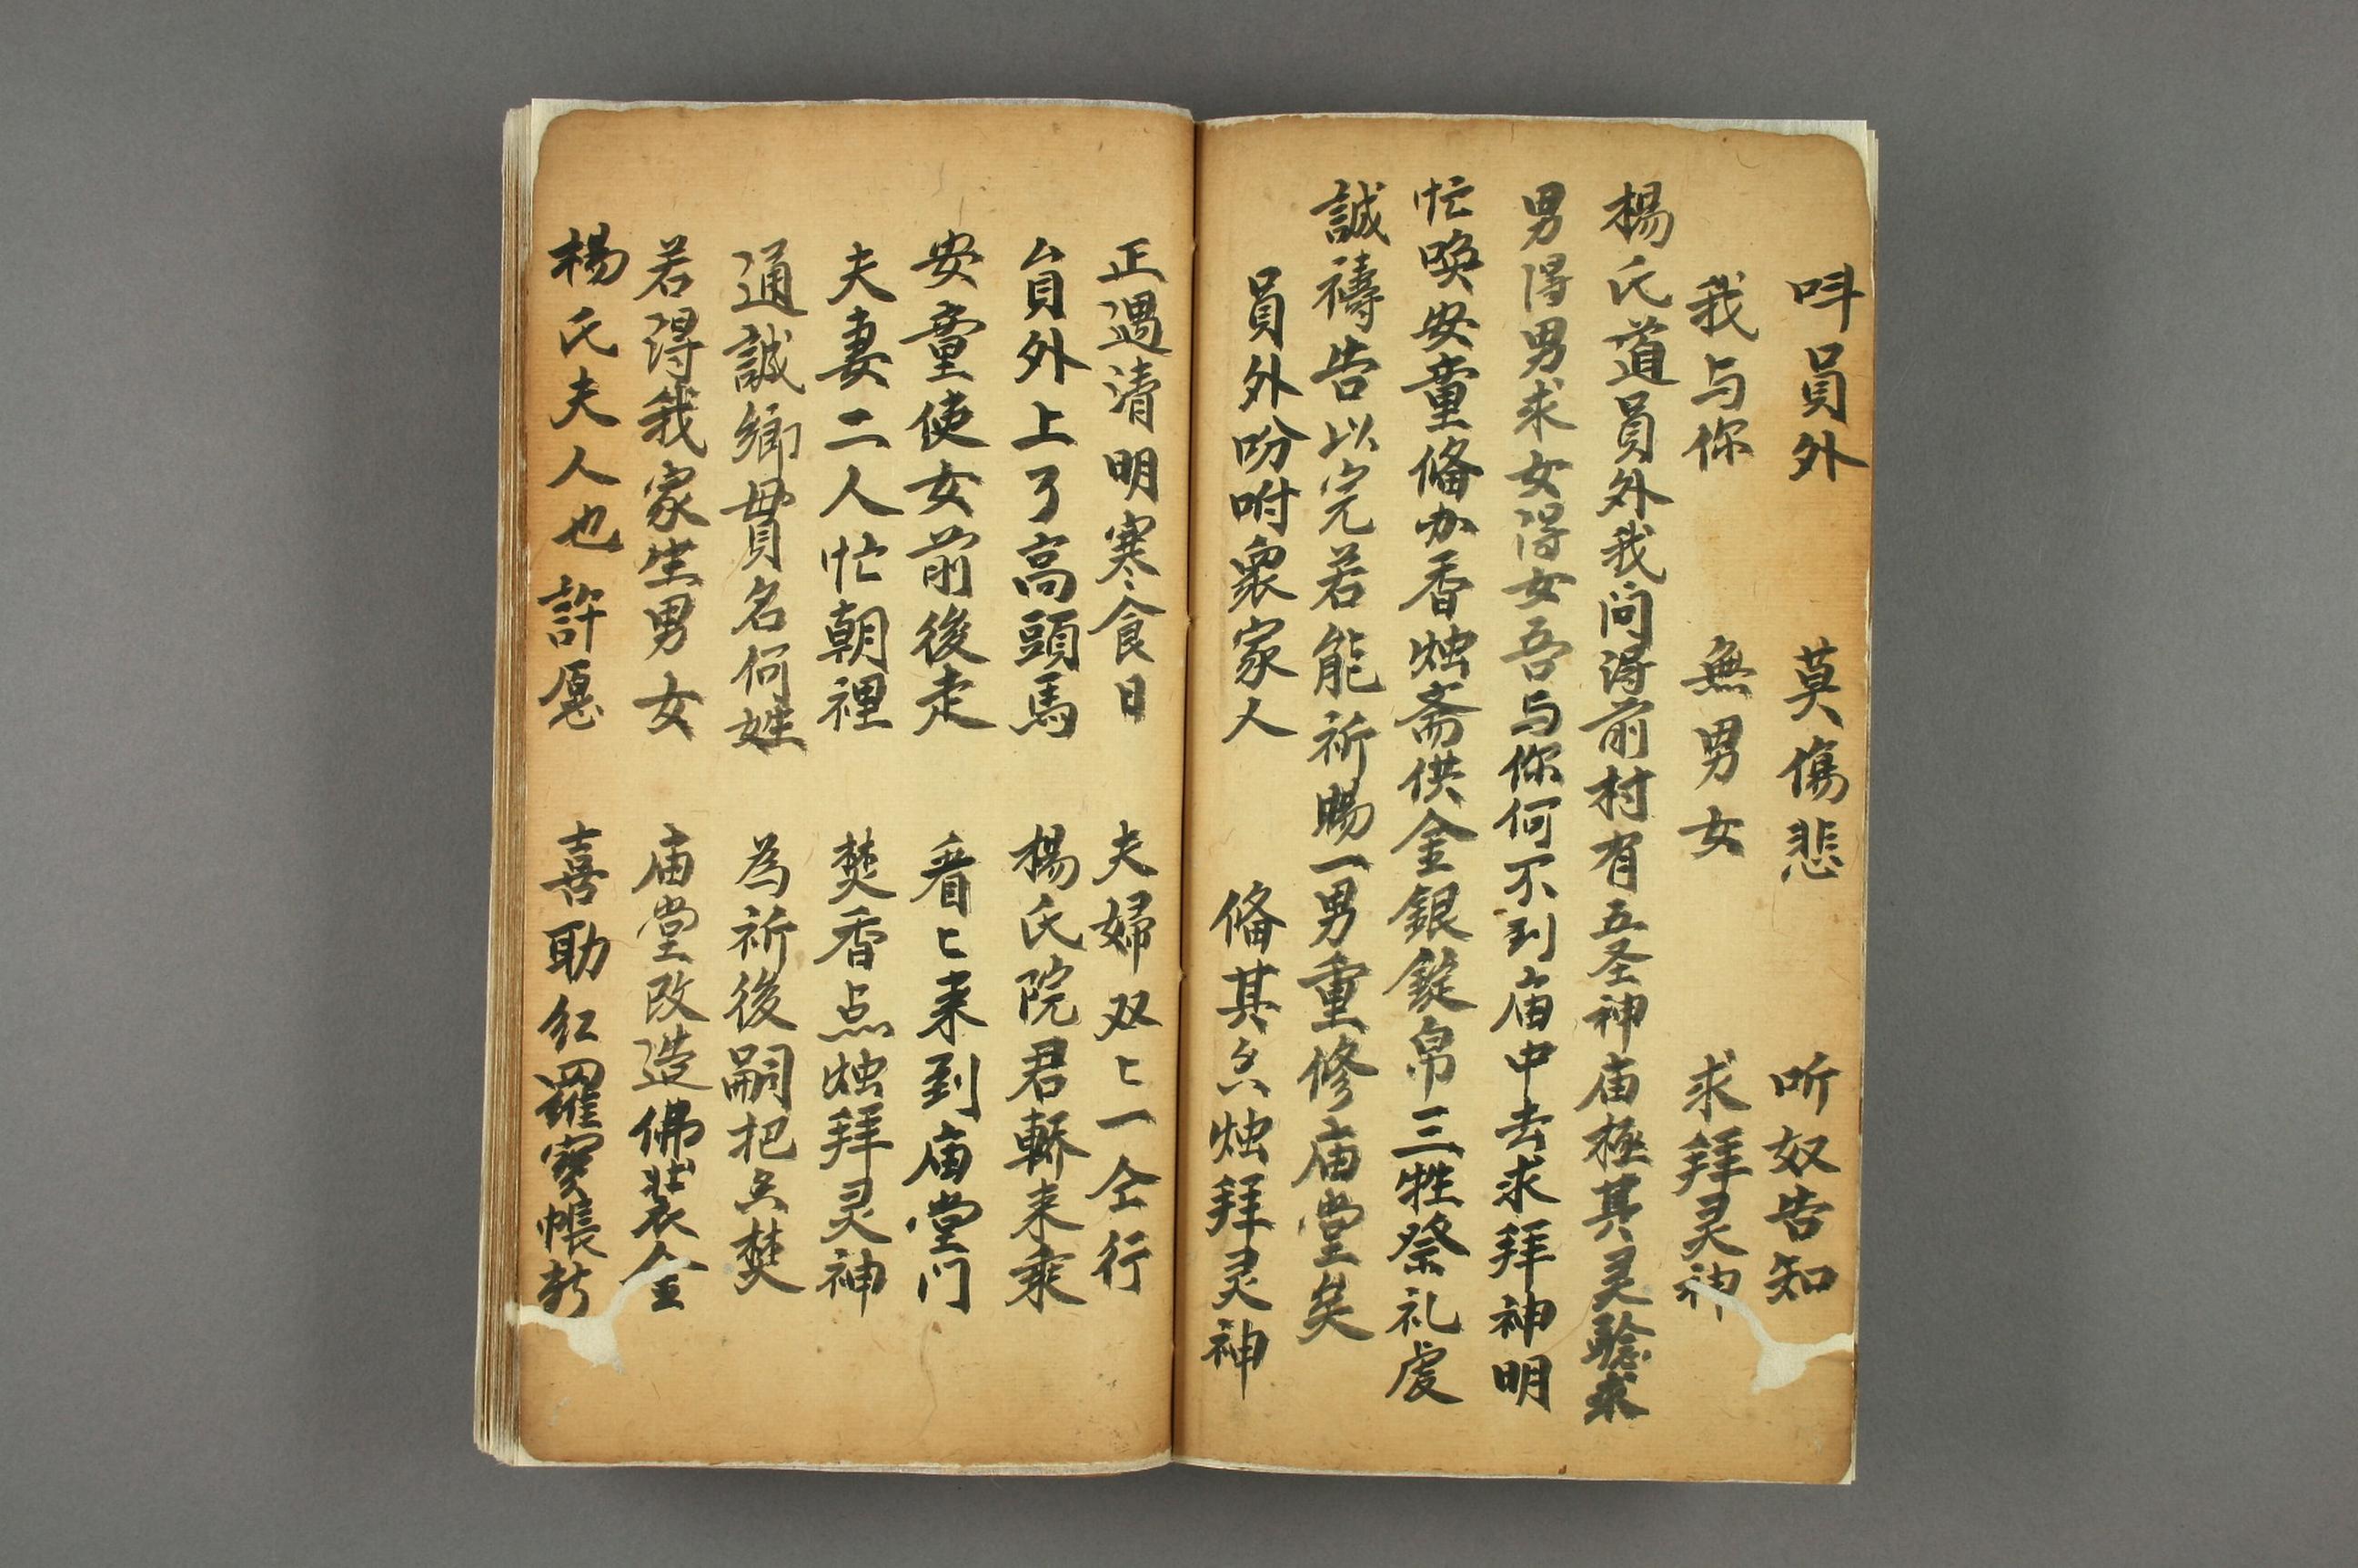 呌員外　莫傷悲　听奴告知
我与你　無男女　求拜灵神
楊氏道員外我问得前村有五圣神庙極其灵驗求
男得男求女得女吾与你何不到庙中去求拜神明
忙喚安童俻办香烛斋供金銀錠帛三牲祭礼虔
誠禱告以完若能祈賜一男重修庙堂矣
員外吩咐衆家人　俻其烛拜灵神
正遇清明寒食日　夫婦双〻一仝行
員外上了高頭馬　楊氏院君轎来乘
安童使女前後走　看〻来到庙堂门
夫妻二人忙朝裡　焚香点烛拜灵神
通誠鄉貫名何姓　為祈後嗣把焚
若得我家生男女　庙堂改造佛裝金
楊氏夫人也許愿　喜助紅羅寳帳新